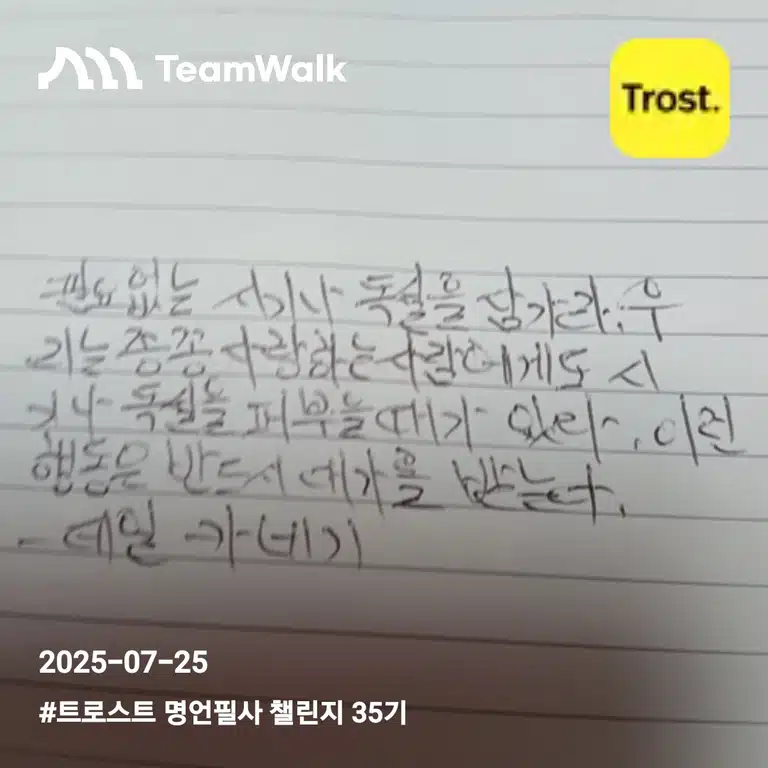 TeamWalk
Trost.
필요없는 시기나 독설을 삼가라. 우
리는 종종 사랑하는 사람에게도 시
기나 독설을 퍼부을 때가 있다. 이런
행동은 반드시 대가을 받는다.
- 데일 카네기
2025-07-25
#트로스트 명언필사 챌린지 35기